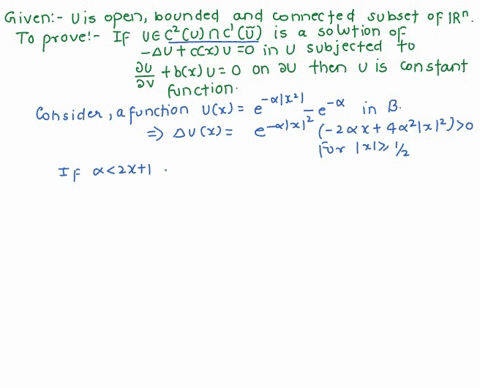 Given:- U is open, bounded and connected subset of ℝⁿ.
To prove:- If U∈ C²(U) ∩ C'(Ū) is a solution of
-ΔU + c(x) U = 0 in U subjected to
∂U/∂ν + b(x) u = 0 on ∂U then U is constant
function.
Consider, a function U(x) = e^{-α|x²|} - e^{-α} in B.
⇒ ΔU(x) = e^{-α|x|²} (-2αx + 4α²|x|²) > 0
For |x| ≥ 1/2
If α < 2x+1 .